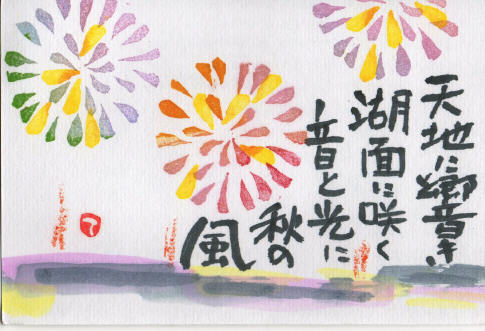 天地に響き
湖面に咲く
音と光に
秋の
風